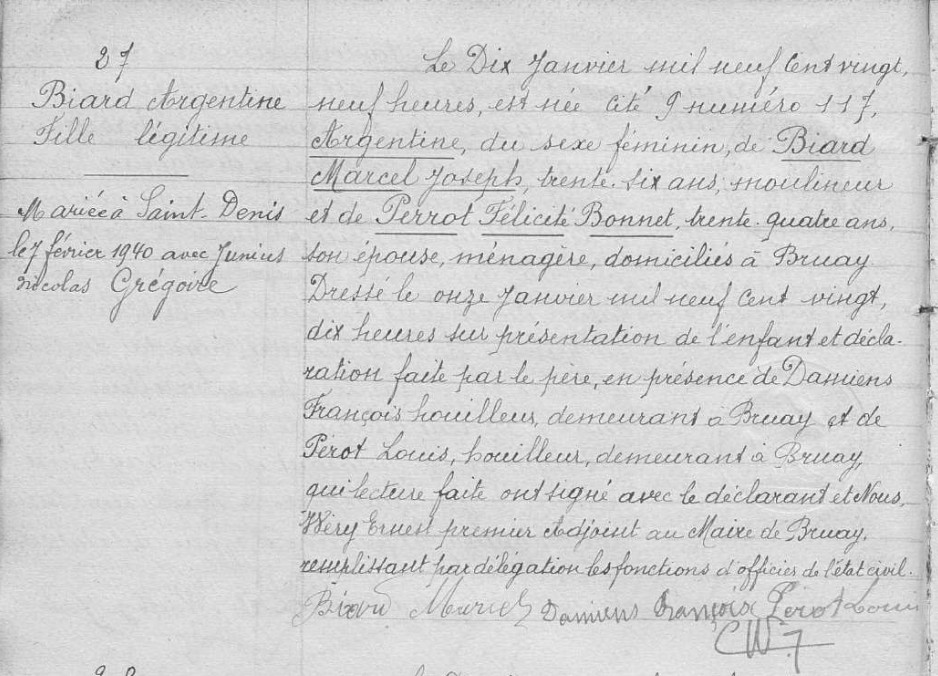 27
Biard Argentine
Fille légitime
Mariée à Saint-Denis
le 7 février 1940 avec Junius
Nicolas Grégoire
Le Dix Janvier mil neuf Cent vingt,
neuf heures, est née cité 9 numéro 117,
Argentine, du sexe féminin, de Biard
Marcel Joseph, trente-six ans, moulineur
et de Perrot Félicité Bonnet, trente-quatre ans,
son épouse, ménagère, domiciliés à Bruay
Dressé le onze Janvier mil neuf Cent vingt,
dix heures sur présentation de l'enfant et décla-
ration faite par le père, en présence de Damiens
François houilleur, demeurant à Bruay et de
Perot Louis, houilleur, demeurant à Bruay,
qui lecture faite ont signé avec le déclarant et Nous,
Wéry Ernest premier Adjoint au Maire de Bruay,
remplissant par délégation les fonctions d'officier de l'état civil.
Biard Marcel Damiens François Perot Louis